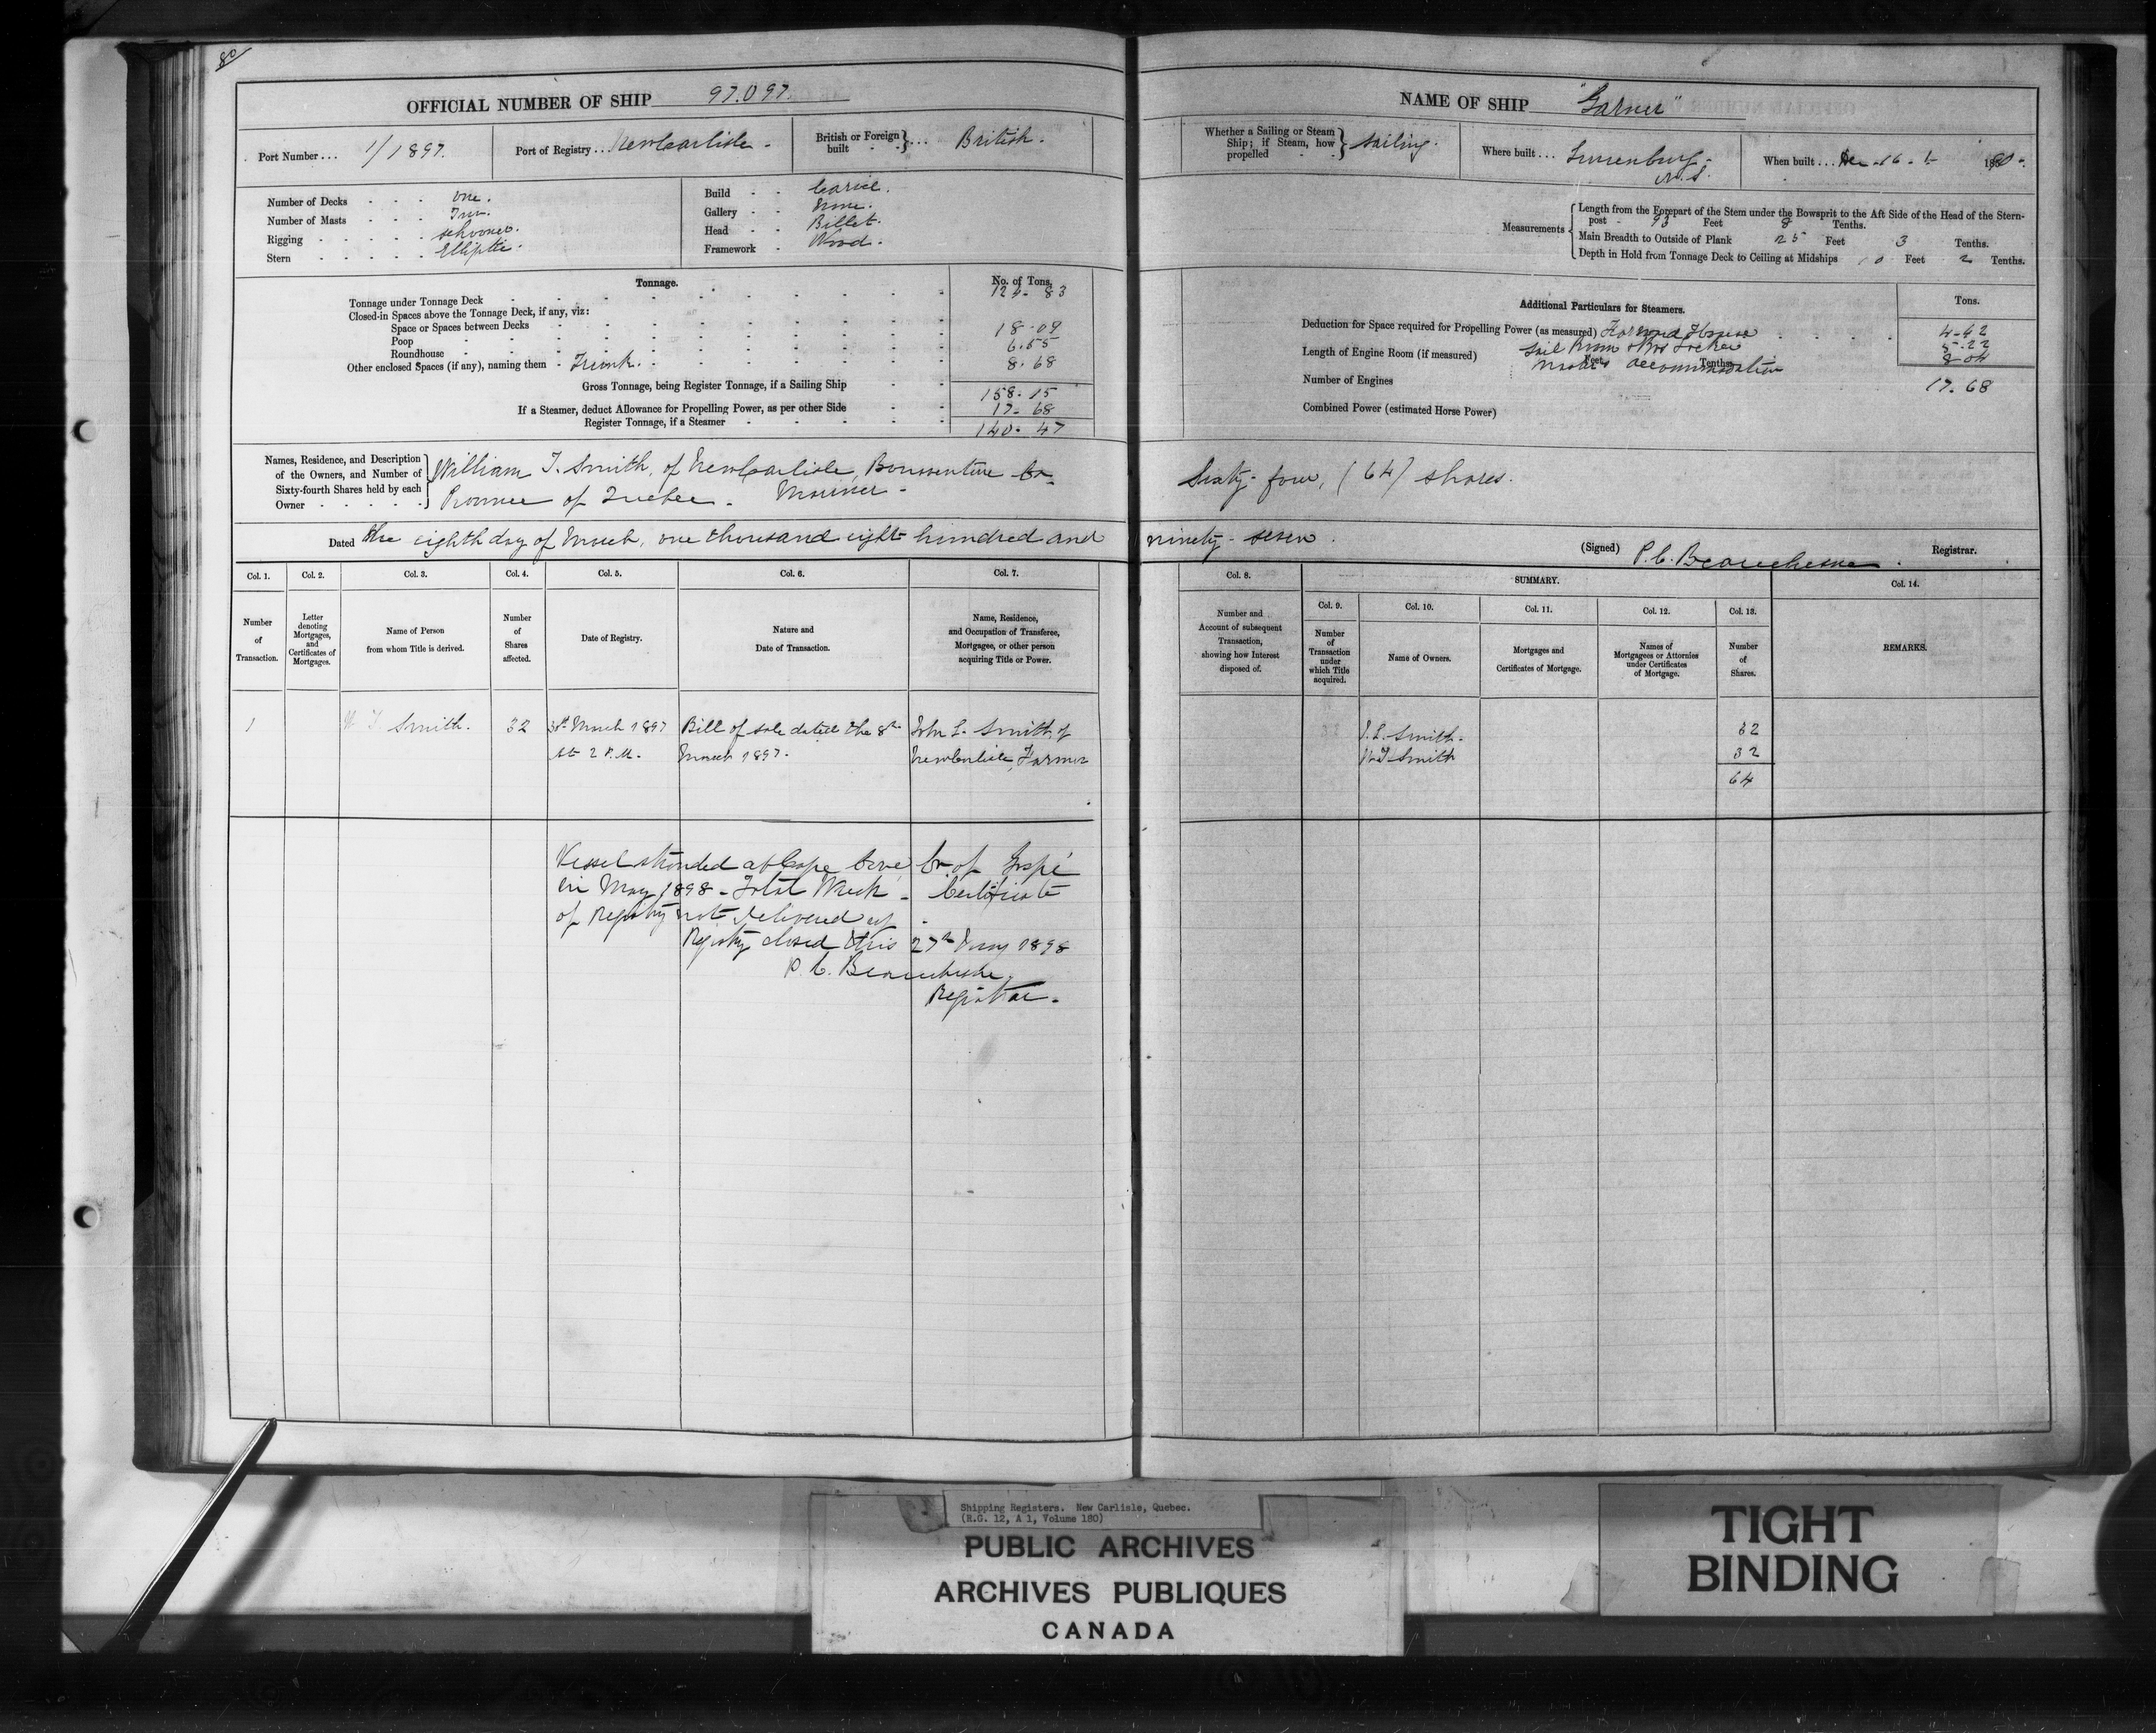 80
OFFICIAL NUMBER OF SHIP 97.097.
Port Number ... 1/1897.
Port of Registry ... New Carlisle -
British or Foreign built ... British.
Number of Decks one.
Number of Masts Two.
Rigging schooner.
Stern Elliptic.
Build Carvel.
Gallery None.
Head Billet.
Framework Wood.
Tonnage.
No. of Tons.
Tonnage under Tonnage Deck 124. 83
Closed-in Spaces above the Tonnage Deck, if any, viz:
Space or Spaces between Decks
Poop 18.09
Roundhouse 6.55
Other enclosed Spaces (if any), naming them - Trunk. 8.68
Gross Tonnage, being Register Tonnage, if a Sailing Ship 158.15
If a Steamer, deduct Allowance for Propelling Power, as per other Side 17.68
Register Tonnage, if a Steamer 140.47
Names, Residence, and Description of the Owners, and Number of Sixty-fourth Shares held by each Owner
William T. Smith, of New Carlisle, Bonaventure Co
Province of Quebec - Mariner -
Dated the eighth day of March, one thousand eight hundred and
Col. 1. Col. 2. Col. 3. Col. 4. Col. 5. Col. 6. Col. 7.
Number of Transaction.
Letter denoting Mortgages, and Certificates of Mortgages.
Name of Person from whom Title is derived.
Number of Shares affected.
Date of Registry.
Nature and Date of Transaction.
Name, Residence, and Occupation of Transferee, Mortgagee, or other person acquiring Title or Power.
1 W T Smith. 32 March 1897 Bill of sale dated the 8th John L. Smith of
at 2 P.M. March 1897. New Carlisle, Farmer
Vessel stranded at Cape Cove, Co. of Gaspé
in May 1898 - Total Wreck - Certificate
of Registry not delivered up -
Registry closed this 27th May 1898
P. C. Beauchesne,
Registrar.
NAME OF SHIP "Garner"
Whether a Sailing or Steam Ship; if Steam, how propelled Sailing.
Where built ... Lunenburg, N.S.
When built ... 1890.
Measurements
Length from the Forepart of the Stem under the Bowsprit to the Aft Side of the Head of the Stern-
post 93 Feet 8 Tenths.
Main Breadth to Outside of Plank 25 Feet 3 Tenths.
Depth in Hold from Tonnage Deck to Ceiling at Midships 10 Feet 2 Tenths.
Additional Particulars for Steamers.
Tons.
Deduction for Space required for Propelling Power (as measured) Forward House 4.42
Sail Room & Bos Locker 5.22
Length of Engine Room (if measured) Feet Tenths
Masters accommodation 8.04
Number of Engines 17.68
Combined Power (estimated Horse Power)
Sixty-four, (64) shares.
ninety-seven.
(Signed) P. C. Beauchesne. Registrar.
Col. 8. SUMMARY. Col. 14.
Col. 9. Col. 10. Col. 11. Col. 12. Col. 13.
Number and Account of subsequent Transaction, showing how Interest disposed of.
Number of Transaction under which Title acquired.
Name of Owners.
Mortgages and Certificates of Mortgage.
Names of Mortgagees or Attornies under Certificates of Mortgage.
Number of Shares.
REMARKS.
J. L. Smith. 32
W T Smith 32
64
Shipping Registers. New Carlisle, Quebec.
(R.G. 12, A 1, Volume 180)
PUBLIC ARCHIVES
ARCHIVES PUBLIQUES
CANADA
TIGHT
BINDING